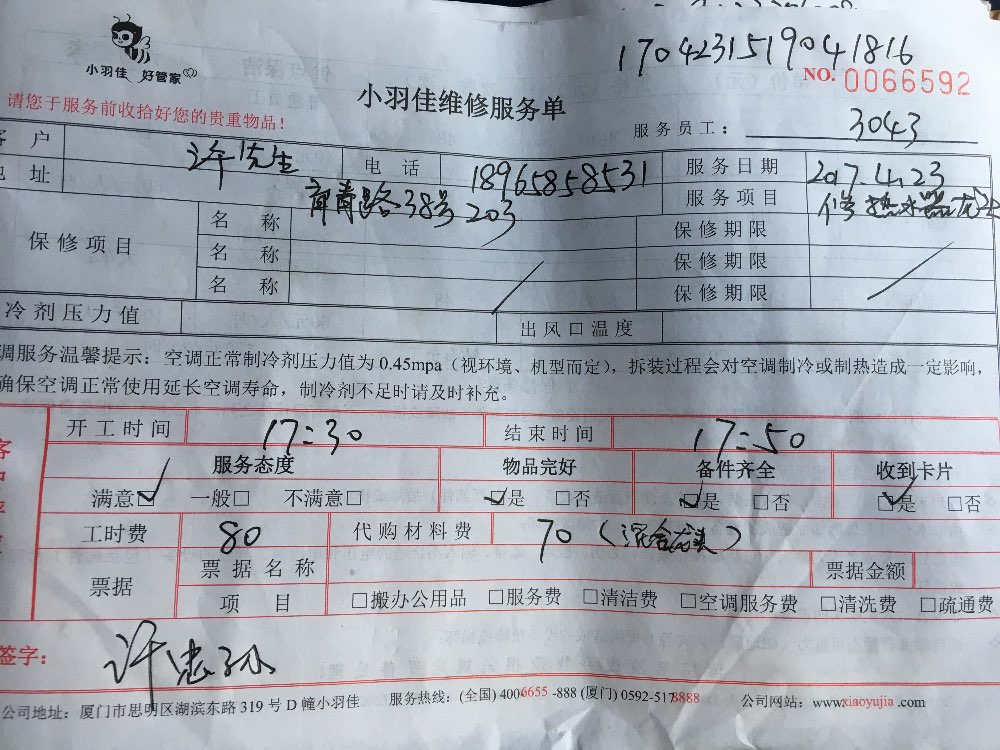 1704231519041816
小羽佳 好管家
NO. 0066592
请您于服务前收拾好您的贵重物品！
小羽佳维修服务单
服务员工： 3043
客 户 许先生 电 话 18965858531 服务日期 2017.4.23
地 址 38号203 服务项目 修热水器龙头
保修项目 名 称 保修期限
名 称 保修期限
名 称 保修期限
冷剂压力值 出风口温度
调服务温馨提示：空调正常制冷剂压力值为 0.45mpa（视环境、机型而定），拆装过程会对空调制冷或制热造成一定影响，
确保空调正常使用延长空调寿命，制冷剂不足时请及时补充。
开工时间 17:30 结束时间 17:50
服务态度 物品完好 备件齐全 收到卡片
满意☑ 一般□ 不满意□ ☑是 □否 ☑是 □否 ☑是 □否
工时费 80 代购材料费 70（混合龙头）
票据 票据名称 票据金额
项 目 □搬办公用品 □服务费 □清洁费 □空调服务费 □清洗费 □疏通费
签字：
公司地址：厦门市思明区湖滨东路 319 号 D 幢小羽佳 服务热线：(全国) 4006655 -888 (厦门) 0592-5178888 公司网站：www.xiaoyujia .com